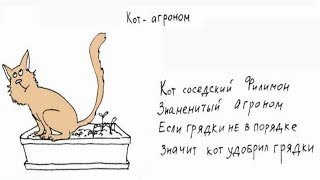 Кот - агроном
Кот соседский Филимон
Знаменитый Агроном
Если грядки не в порядке
Значит кот удобрил грядки